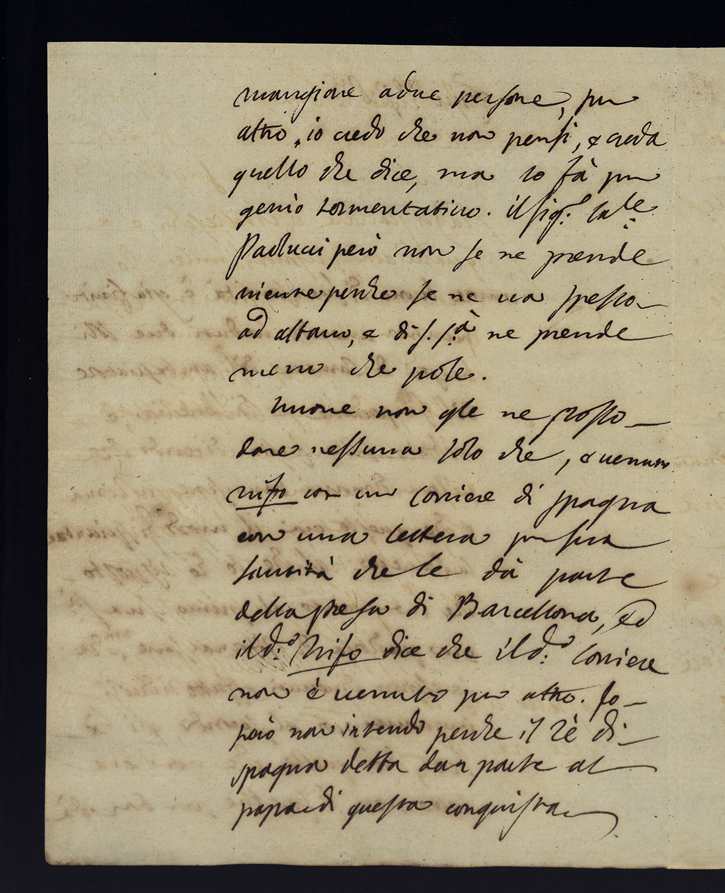 mangiare a due persone, per
altro, io credo che non pensi, & creda
quello che dice, ma lo fà per
genio tormentativo. il sig.r
Paolucci però non se ne prende
niente perche se ne va spesso
ad altano, & di S. S.tà ne prende
meno che pole.
nuove non gle ne posso
dare nessuna solo che, è venuto
nifo con un Corriere di spagna
con una lettera per sua
santità che le dà parte
della presa di Barcellona, ed
il d.o Nifo dice che il d.o Corriere
non è venuto per altro. Io
però non intendo perche il Rè di
spagna debba dar parte al
papa di questa conquista